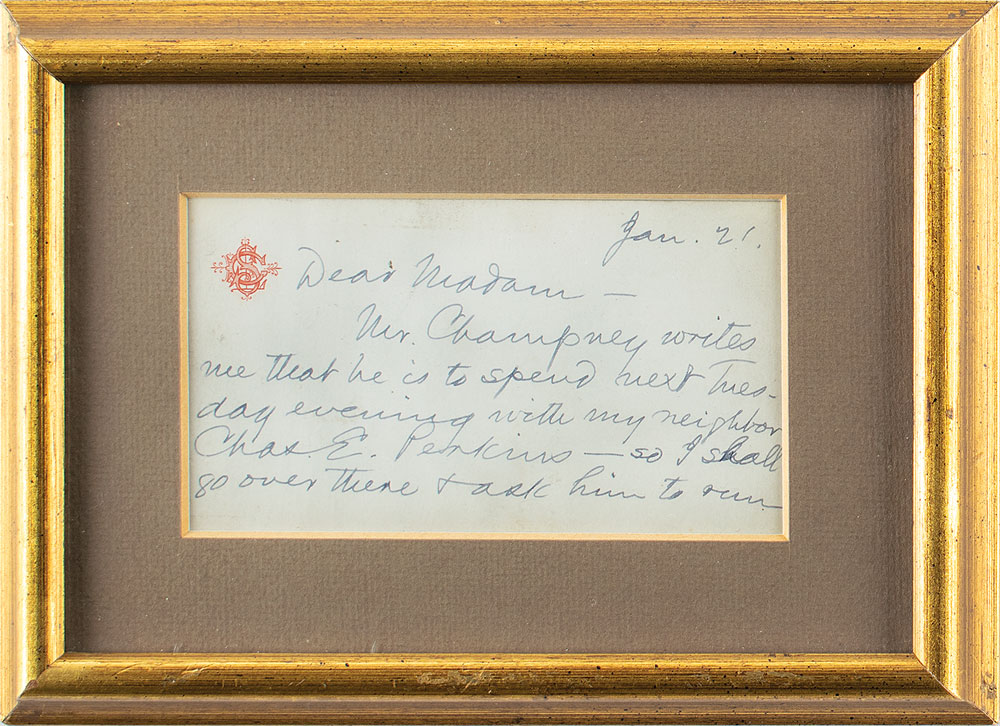 Jan. 21.
Dear Madam —
Mr. Champney writes
me that he is to spend next Tues-
day evening with my neighbor
Chas. E. Perkins — so I shall
go over there & ask him to run